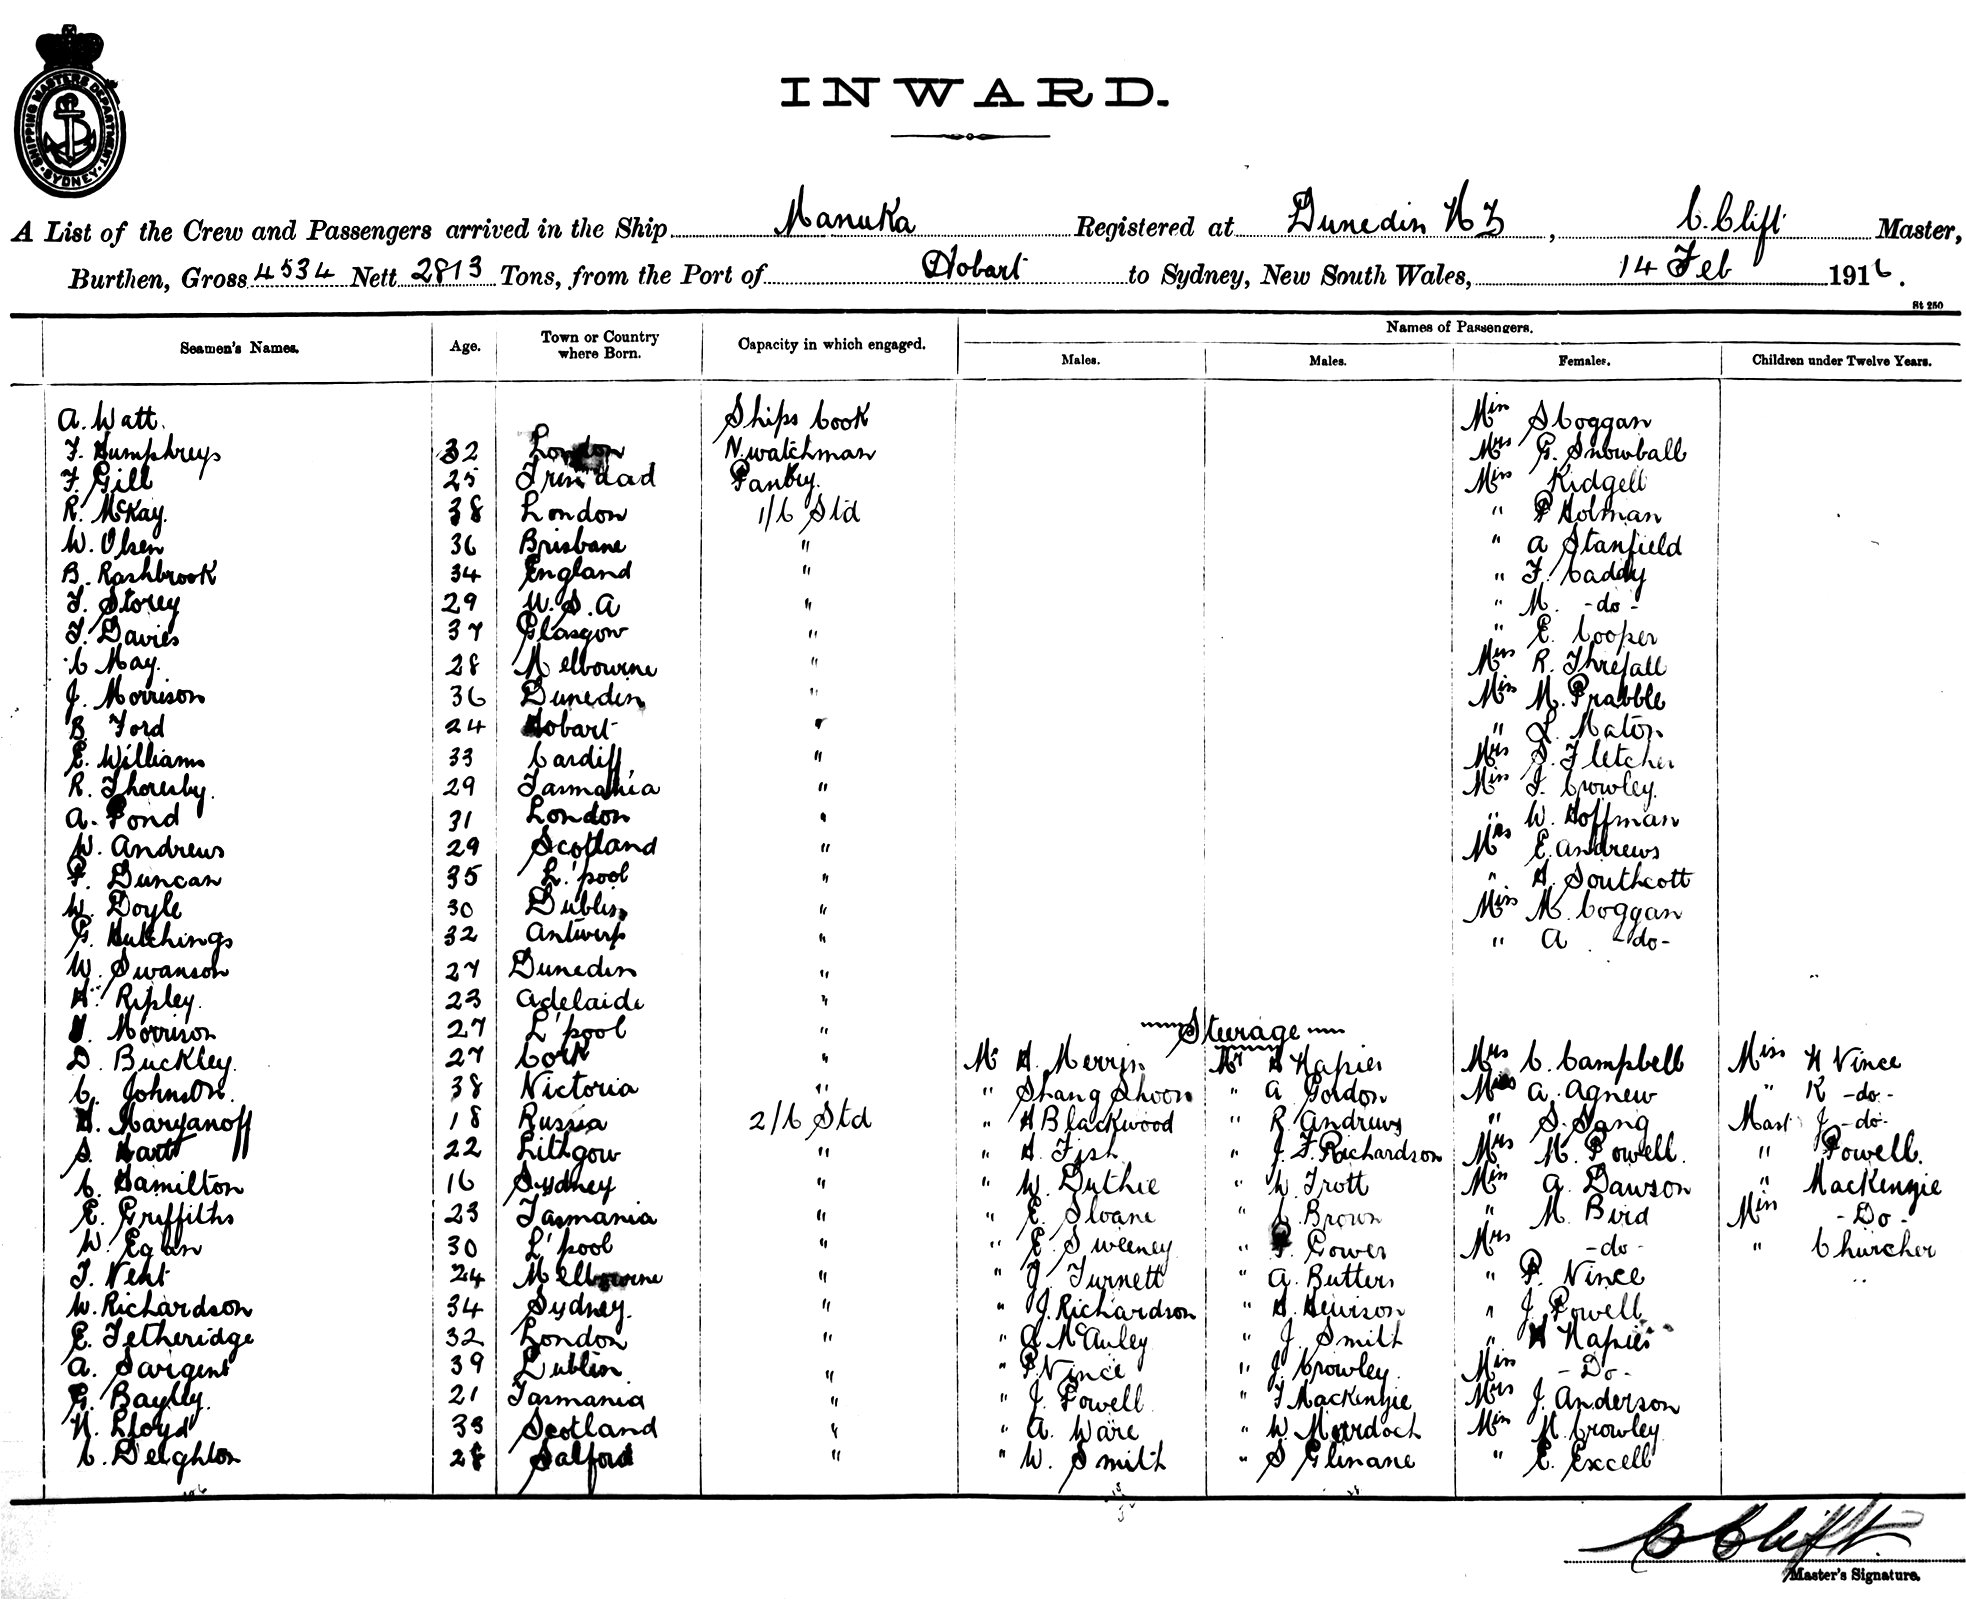 SHIPPING MASTERS DEPARTMENT · SYDNEY ·
INWARD.
A List of the Crew and Passengers arrived in the Ship Manuka Registered at Dunedin NZ, C. Clift Master,
Burthen, Gross 4534 Nett 2813 Tons, from the Port of Hobart to Sydney, New South Wales, 14 Feb 1916.
St 250
Names of Passengers.
Seamen's Names. Age. Town or Country where Born. Capacity in which engaged. Males. Males. Females. Children under Twelve Years.
A. Watt. Ships Cook Miss S Coggan
F. Humphreys 32 London N. watchman Mrs G. Snowball
F. Gill 25 Trinidad Pantry. Miss Kidgell
R. McKay. 38 London 1/C Std " P Holman
W. Olsen 36 Brisbane " " A Stanfield
B. Rashbrook 34 England " " F. Caddy
F. Storey 29 U.S.A " " M. -do-
F. Davies 37 Glasgow " " E. Cooper
C May. 28 Melbourne " R. Threfall
J. Morrison 36 Dunedin " Miss M. Prabble
B Ford 24 Hobart " " L. Maton
E. Williams 33 Cardiff " Mrs S. Fletcher
R. Thoresby. 29 Tasmania " Miss J. Crowley.
A. Pond 31 London " " W. Hoffman
W. Andrews 29 Scotland " Mrs E. Andrews
P. Duncan 35 L'pool " " H. Southcott
W. Doyle 30 Dublin " Miss M. Coggan
G. Hutchings 32 Antwerp " " A. -do-
W. Swanson 27 Dunedin "
H. Ripley. 23 Adelaide "
Morrison 27 L'pool " Steerage
D. Buckley. 27 Cork " Mr H. Merryn Mr H Napier Mrs C. Campbell Miss H Vince
C. Johnston. 38 Victoria " " Shang Shoon " A Gordon A. Agnew " K -do-
H. Maryanoff 18 Russia 2/C Std " H Blackwood " R. Andrews " S. Sang Mast J -do-
S. Hart 22 Lithgow " " H. Fish " J. F. Richardson Mrs M. Powell. " Powell.
C. Hamilton 16 Sydney " " W. Duthie " W Trott Miss A. Dawson " MacKenzie
E. Griffiths 23 Tasmania " " E. Sloane " C. Brown " M. Bird Miss -Do-
W. Egan 30 L'pool " " E. Sweeney " Gower Mrs -do- " Churcher
T. Vent 24 Melbourne " " J. Turnett " A. Butters " P. Vince
W. Richardson 34 Sydney. " " J. Richardson " H. Hewison " J. Powell
E. Fetheridge 32 London " " A McAuley " J. Smith " H Napier
A. Sargent 39 Dublin " " P. Vince " J. Crowley. Miss -Do-
G. Bayley. 21 Tasmania " " J. Powell " T Mackenzie Mrs J. Anderson
N. Lloyd 33 Scotland " " A. Ware " W. Murdoch Miss N. Crowley
C. Deighton 28 Salford " " W. Smith " S Glinane " E. Excell
C Clift.
Master's Signature.